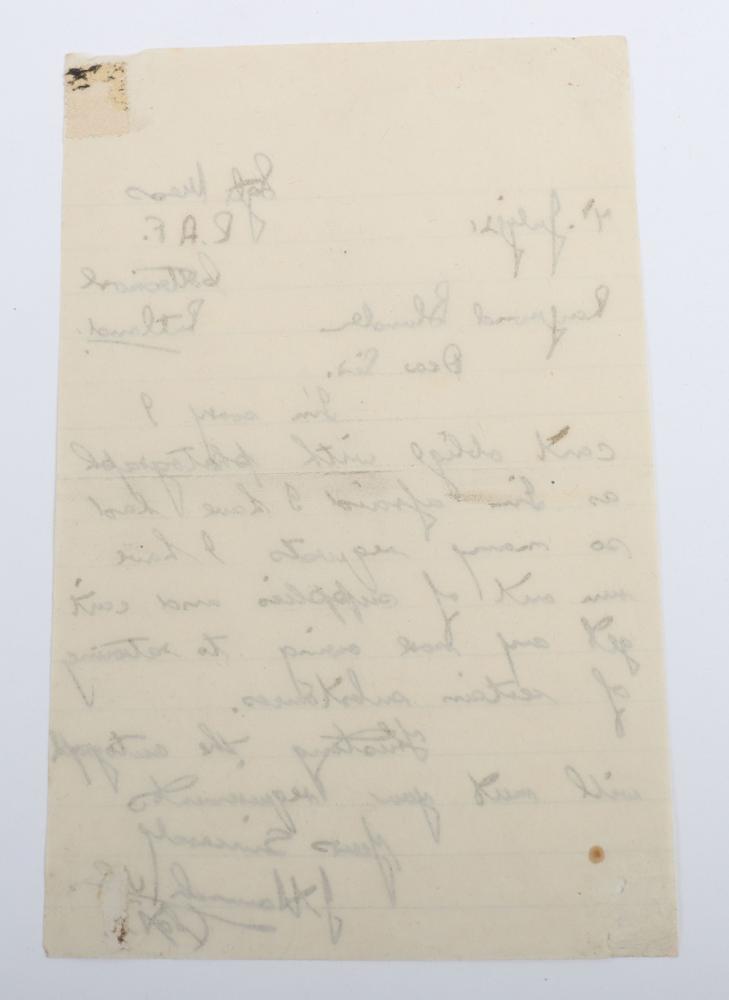 Sgt Mess
4th July
R.A.F.
Cottesmore
Raymond
Rutland
Dear Sir.
I'm sorry I
can't oblige with photograph
as I'm afraid I have had
so many requests I have
run out of supplies and can't
get any more owing to rationing
of certain substances.
Trusting the autograph
will meet your requirements
Yours Sincerely
J Hannah V.C.
Sgt